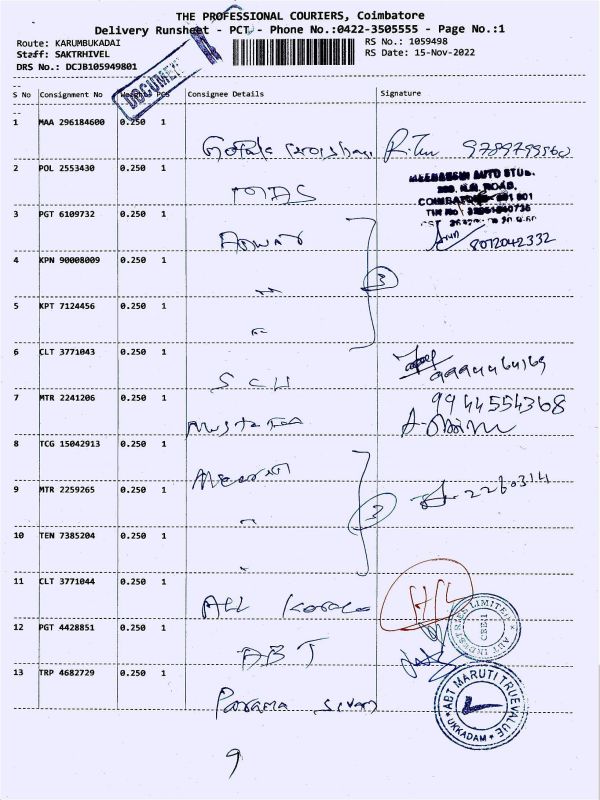 THE PROFESSIONAL COURIERS, Coimbatore
Delivery Runsheet - PCT - Phone No.:0422-3505555 - Page No.:1
Route: KARUMBUKADAI RS No.: 1059498
Staff: SAKTRHIVEL RS Date: 15-Nov-2022
DRS No.: DCJB105949801
DOCUMENT
S No Consignment No Weight PCS Consignee Details Signature
1 MAA 296184600 0.250 1
9789799560
2 POL 2553430 0.250 1
MDS
MEENAKSHI AUTO
ROAD,
3 PGT 6109732 0.250 1
Anwar 8072042332
4 KPN 90008009 0.250 1
" 3
5 KPT 7124456 0.250 1
"
6 CLT 3771043 0.250 1
SCH 9994464169
7 MTR 2241206 0.250 1
9944554368
Mustafa
8 TCG 15042913 0.250 1
9 MTR 2259265 0.250 1
2260314
" 3
10 TEN 7385204 0.250 1
"
11 CLT 3771044 0.250 1
All Kerala
ABT INDUSTRIES LIMITED
CBE-1
12 PGT 4428851 0.250 1
ABT
13 TRP 4682729 0.250 1
Parama Sivan
ABT MARUTI TRUE VALUE
UKKADAM
9